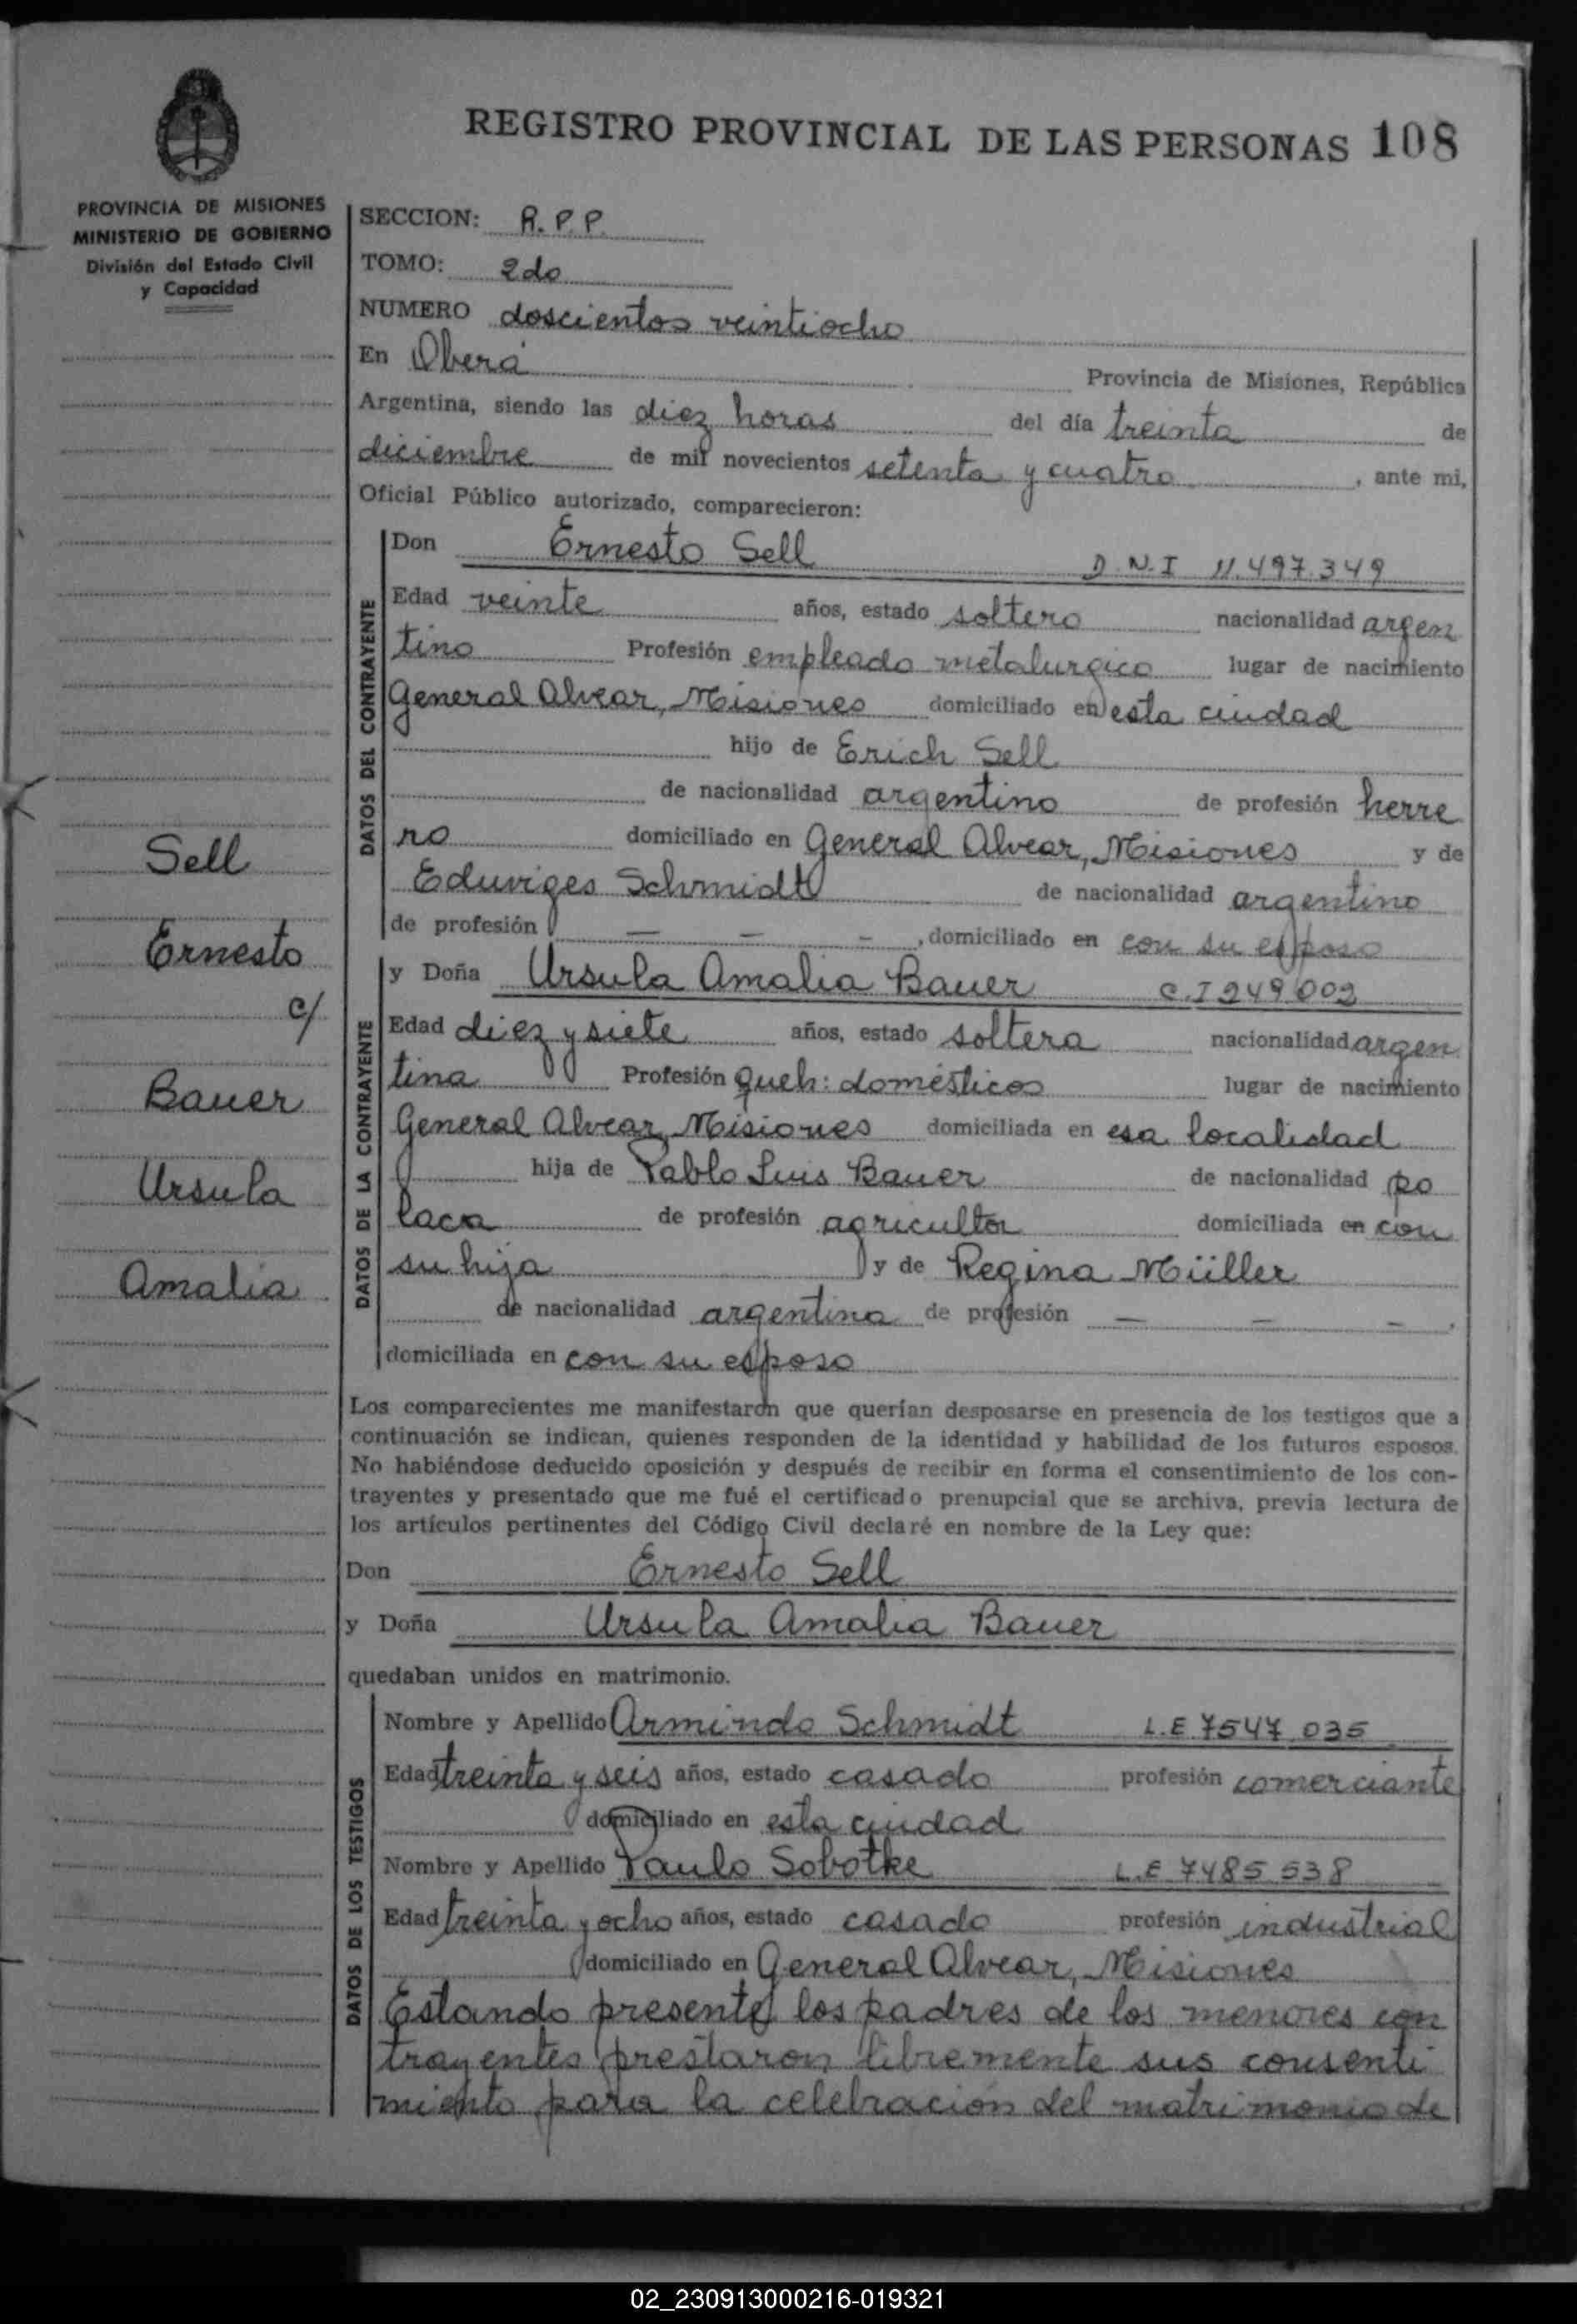 REGISTRO PROVINCIAL DE LAS PERSONAS 108
PROVINCIA DE MISIONES
MINISTERIO DE GOBIERNO
División del Estado Civil
y Capacidad
SECCION: R.P.P.
TOMO: 2do
NUMERO doscientos veintiocho
En Oberá Provincia de Misiones, República
Argentina, siendo las diez horas del día treinta de
diciembre de mil novecientos setenta y cuatro, ante mi,
Oficial Público autorizado, comparecieron:
DATOS DEL CONTRAYENTE
Don Ernesto Sell D.N.I 11.497.349
Edad veinte años, estado soltero nacionalidad argen
tino Profesión empleado metalurgico lugar de nacimiento
General Alvear, Misiones domiciliado en esta ciudad
hijo de Erich Sell
de nacionalidad argentino de profesión herre
ro domiciliado en General Alvear, Misiones y de
Eduviges Schmidt de nacionalidad argentino
de profesión — — —, domiciliado en con su esposo
DATOS DE LA CONTRAYENTE
y Doña Ursula Amalia Bauer C.I 249002
Edad diez y siete años, estado soltera nacionalidad argen
tina Profesión queh: domésticos lugar de nacimiento
General Alvear, Misiones domiciliada en esa localidad
hija de Pablo Luis Bauer de nacionalidad po
laca de profesión agricultor domiciliada en con
su hija y de Regina Müller
de nacionalidad argentina de profesión — — —,
domiciliada en con su esposo
Sell
Ernesto
c/
Bauer
Ursula
Amalia
Los comparecientes me manifestaron que querían desposarse en presencia de los testigos que a
continuación se indican, quienes responden de la identidad y habilidad de los futuros esposos.
No habiéndose deducido oposición y después de recibir en forma el consentimiento de los con-
trayentes y presentado que me fué el certificado prenupcial que se archiva, previa lectura de
los artículos pertinentes del Código Civil declaré en nombre de la Ley que:
Don Ernesto Sell
y Doña Ursula Amalia Bauer
quedaban unidos en matrimonio.
DATOS DE LOS TESTIGOS
Nombre y Apellido Armindo Schmidt L.E 7547.035
Edad treinta y seis años, estado casado profesión comerciante
domiciliado en esta ciudad
Nombre y Apellido Paulo Sobotke L.E 7485.538
Edad treinta y ocho años, estado casado profesión industrial
domiciliado en General Alvear, Misiones
Estando presente los padres de los menores con
trayentes prestaron libremente sus consenti
miento para la celebración del matrimonio de
02_230913000216-019321